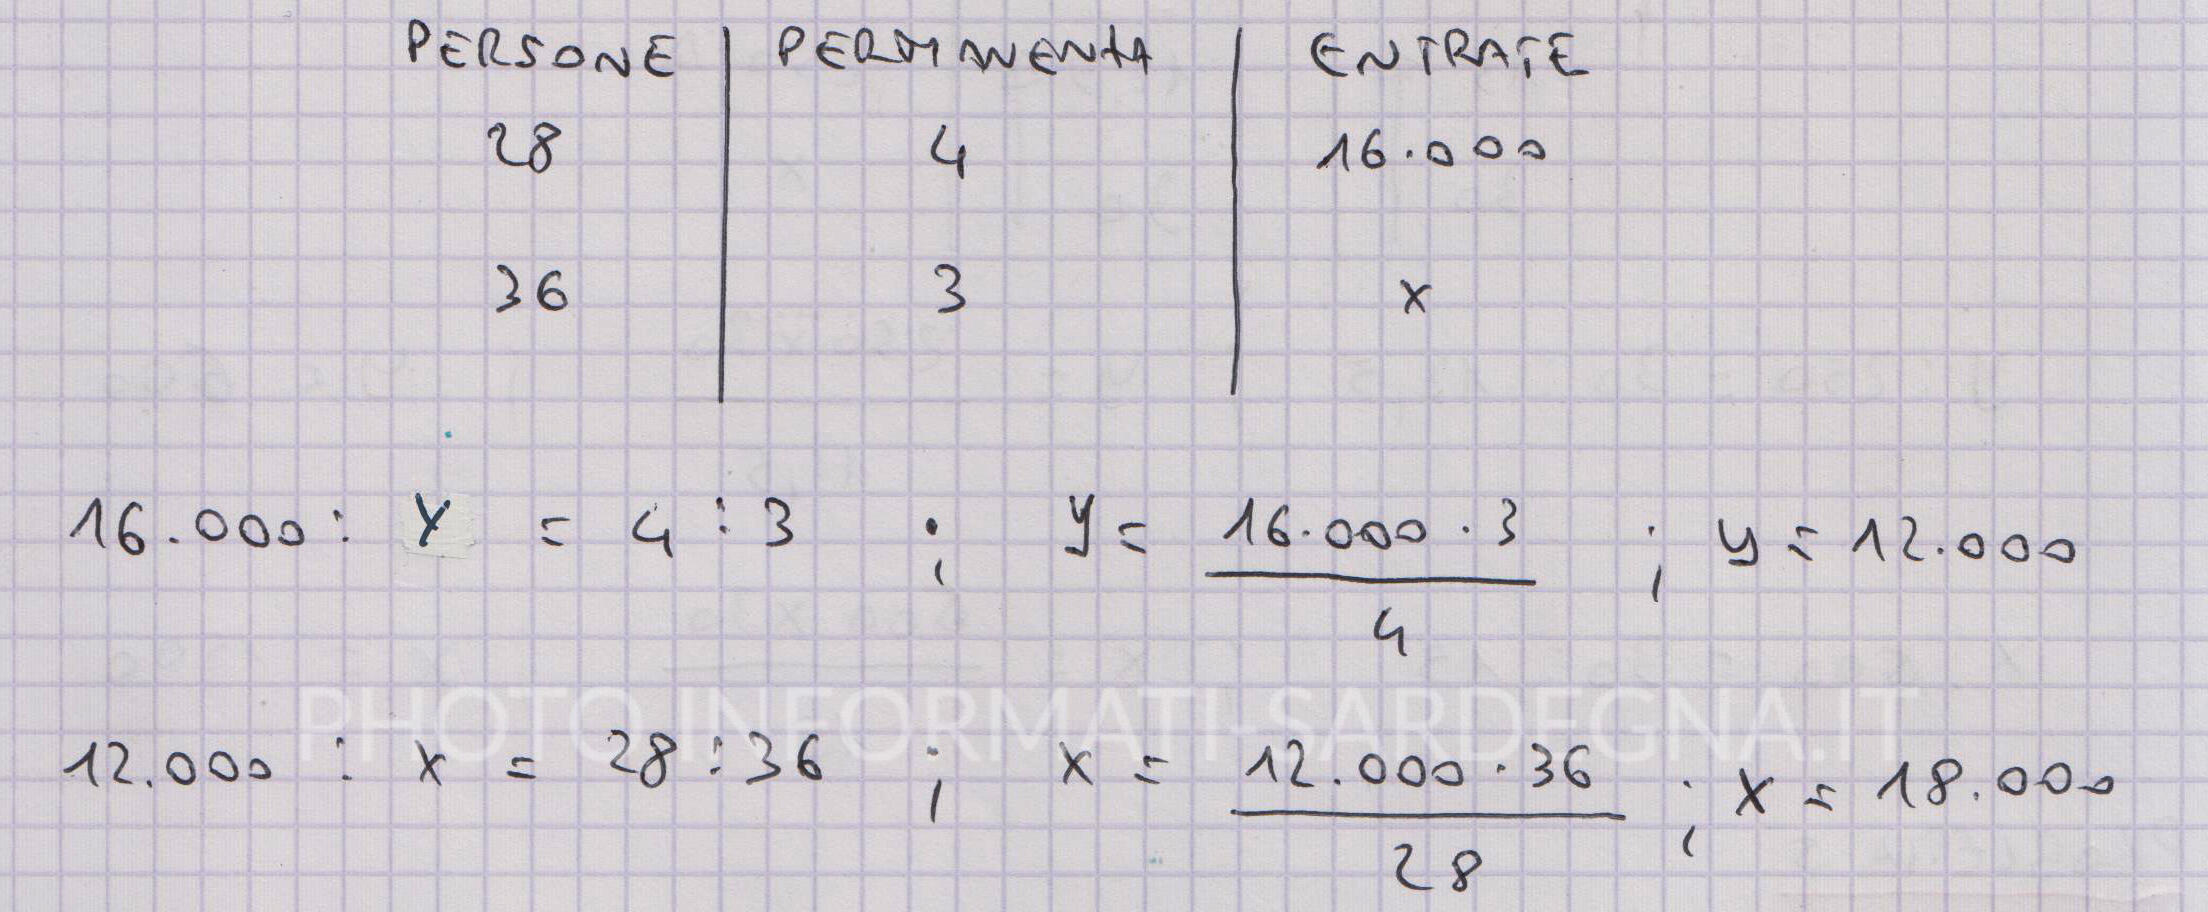 PERSONE | PERMANENZA | ENTRATE
28 4 16.000
36 3 x
16.000 : Y = 4 : 3 ; y = 16.000 . 3 / 4 ; y = 12.000
PHOTO.INFORMATI-SARDEGNA.IT
12.000 : x = 28 : 36 ; x = 12.000 . 36 / 28 ; x = 18.000